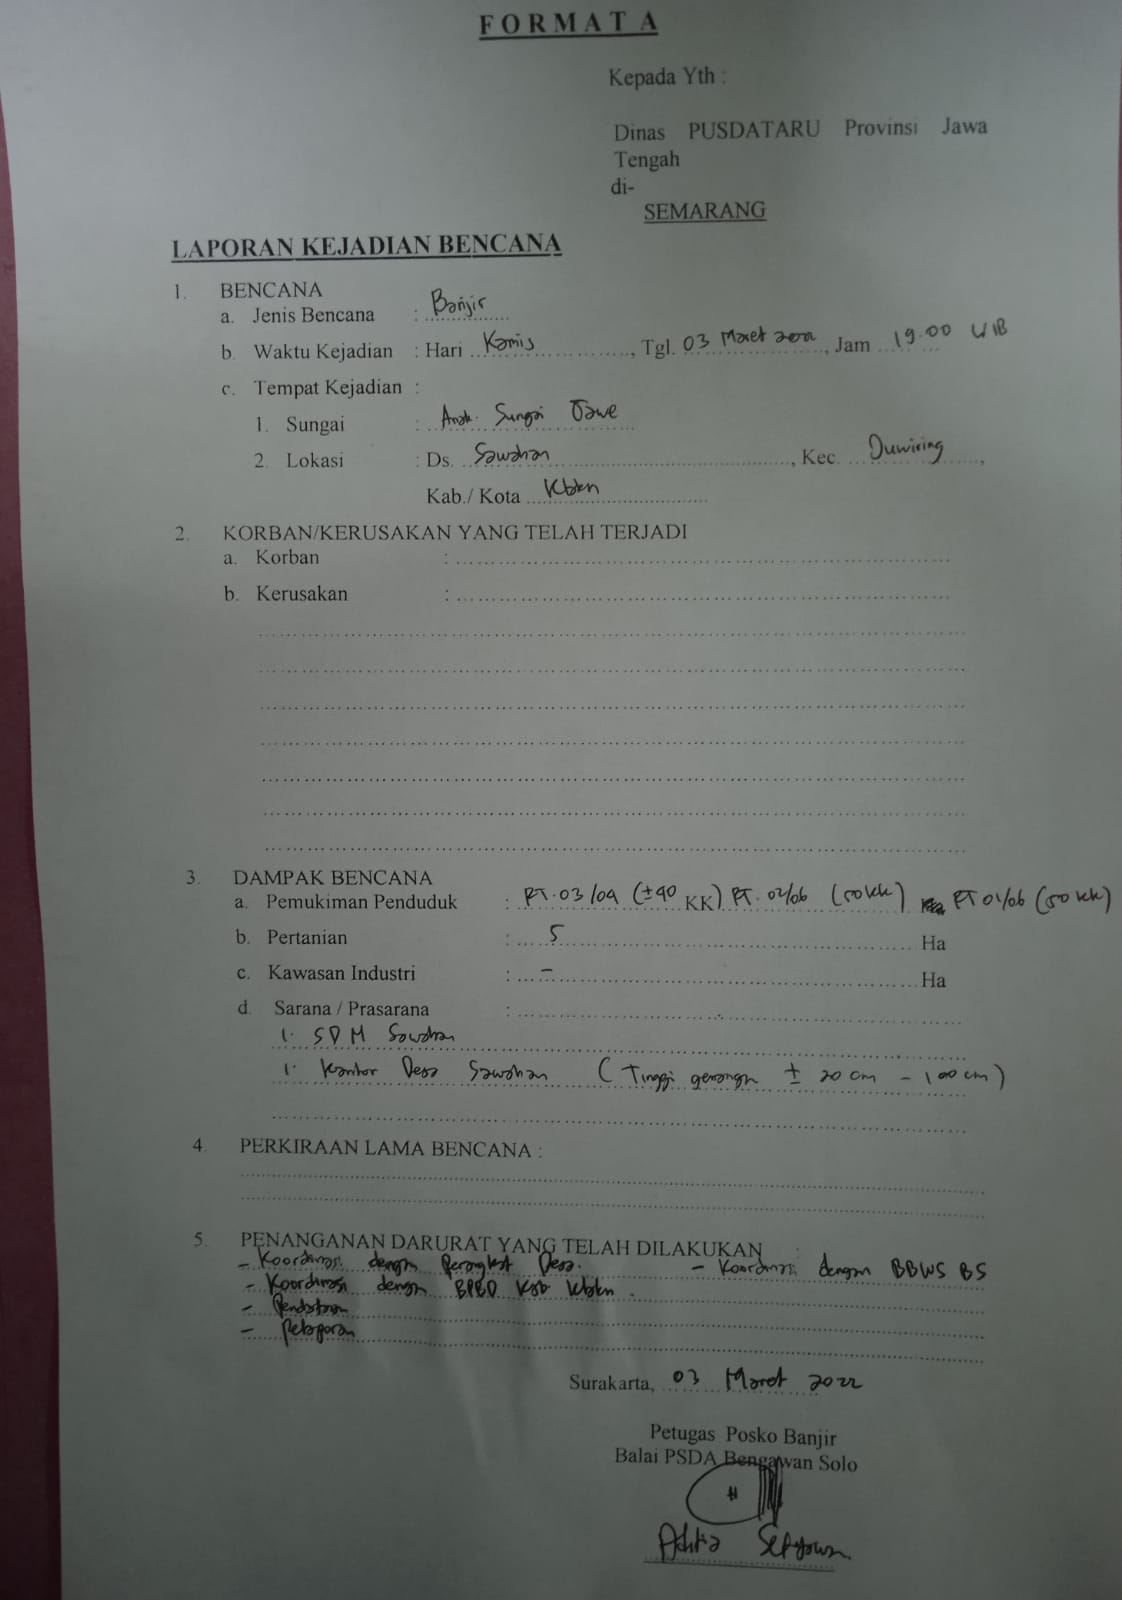 FORMAT A
Kepada Yth :
Dinas PUSDATARU Provinsi Jawa
Tengah
di-
SEMARANG
LAPORAN KEJADIAN BENCANA
1. BENCANA
a. Jenis Bencana : Banjir
b. Waktu Kejadian : Hari Kamis, Tgl. 03 Maret 2022, Jam 19.00 WIB
c. Tempat Kejadian :
1. Sungai : Anak Sungai Jawe
2. Lokasi : Ds. Sawahan, Kec. Juwiring,
Kab./ Kota Klaten
2. KORBAN/KERUSAKAN YANG TELAH TERJADI
a. Korban :
b. Kerusakan :
3. DAMPAK BENCANA
a. Pemukiman Penduduk : RT. 03/04 (±40 KK) RT. 02/06 (50 KK) RT 01/06 (50 KK)
b. Pertanian : 5 Ha
c. Kawasan Industri : - Ha
d. Sarana / Prasarana :
1. Sawahan
1. Kantor Desa Sawahan (Tinggi genangan ± 20 cm - 100 cm)
4. PERKIRAAN LAMA BENCANA :
5. PENANGANAN DARURAT YANG TELAH DILAKUKAN :
- Koordinasi dengan Perangkat Desa. - Koordinasi dengan BBWS BS
- Koordinasi dengan BPBD Kab Klaten.
- Pendataan
- Pelaporan
Surakarta, 03 Maret 2022
Petugas Posko Banjir
Balai PSDA Bengawan Solo